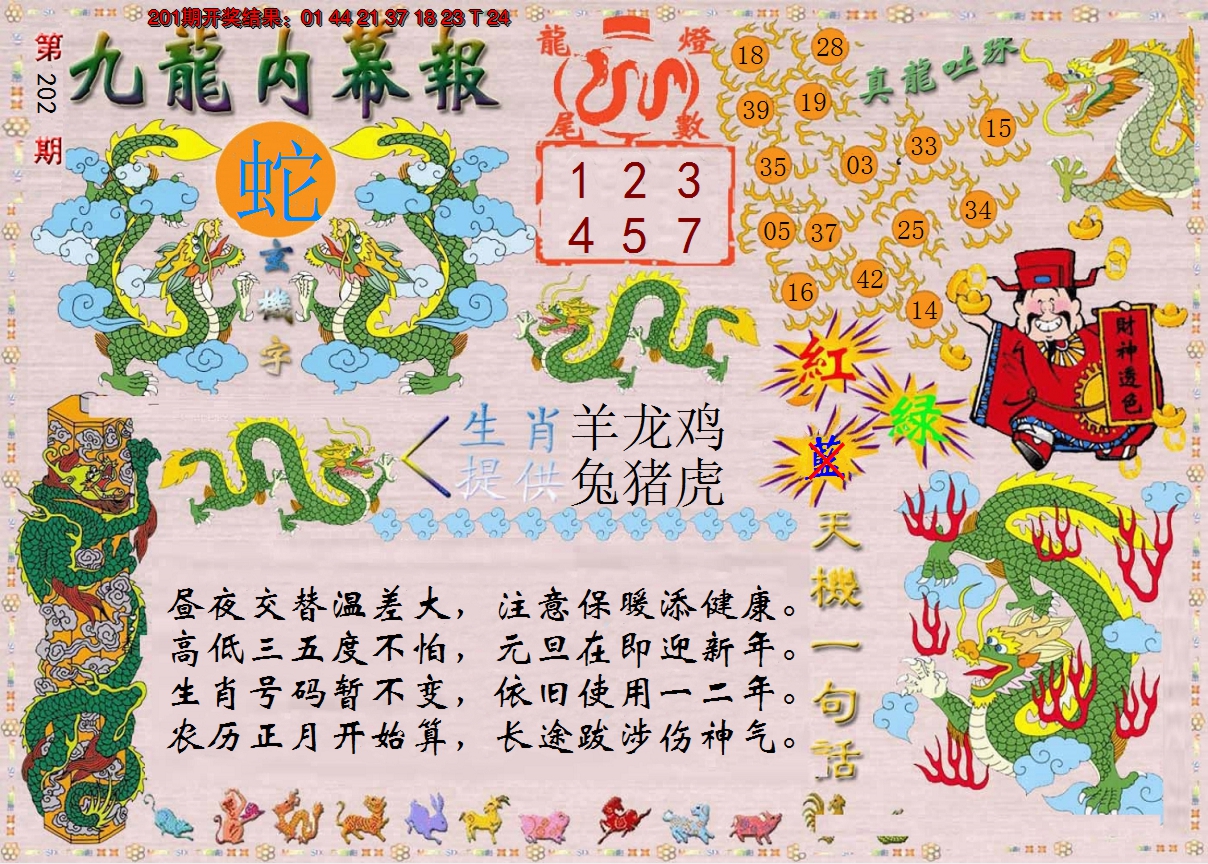 201期开奖结果：01 44 21 37 18 23 T 24
第202期
九龍内幕報
蛇
玄機字
龍燈
尾數
1 2 3
4 5 7
真龍吐珠
18 28
39 19
35 03 33 15
05 37 25 34
16 42 14
紅
綠
藍
財神透色
生肖 羊龙鸡
提供 兔猪虎
天機一句話
昼夜交替温差大，注意保暖添健康。
高低三五度不怕，元旦在即迎新年。
生肖号码暂不变，依旧使用一二年。
农历正月开始算，长途跋涉伤神气。